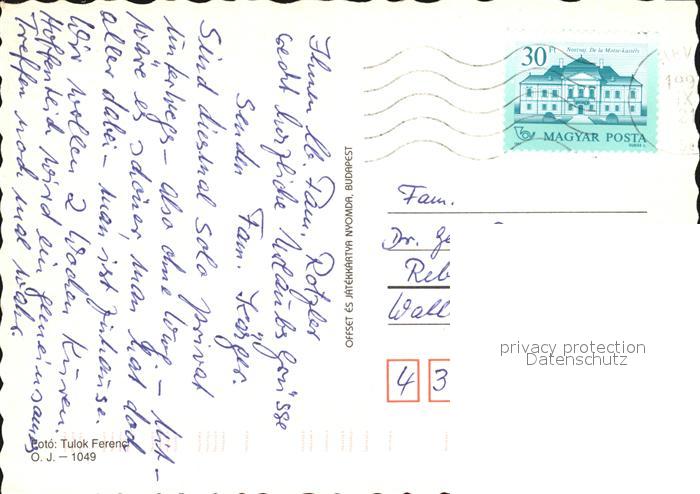 Ihnen lb. Fam. Rotzler
recht herzliche Urlaubsgrüsse
Senden Fam. Karger.
Sind diesmal solo privat
unterwegs – also ohne
wäre es schöner man hat doch
aller dabei – man ist zuhause.
Wir wollen 2 Wochen Kuren.
Hoffentlich wird ein gemeinsames
Treffen noch mal wahr.
Fotó: Tulok Ferenc
O. J. — 1049
OFFSET ÉS JÁTÉKKÁRTYA NYOMDA, BUDAPEST
30 Ft
Noszvaj. De la Motte-kastély
MAGYAR POSTA
Fam.
Dr. Ge
Reb
Wall
4 3
privacy protection
Datenschutz